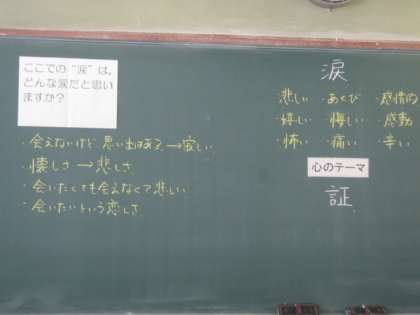 ここでの“涙”は、
どんな涙だと思い
ますか？
・会えないけど思い出はある→寂しい
・懐しさ→悲しさ
・会いたくても会えなくて悲しい
・会いたいという恋しさ
涙
悲しい・あくび・感情的
嬉しい・悔しい・感動
怖い・痛い・辛い
心のテーマ
証